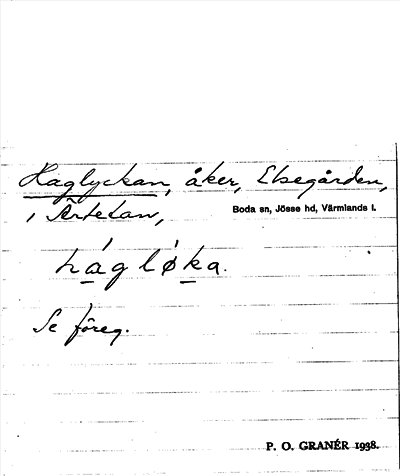 Haglyckan, åker, Elsegården,
i Ärtetan,
Boda sn, Jösse hd, Värmlands l.
hágløka.
Se föreg.
P. O. GRANÉR 1938.